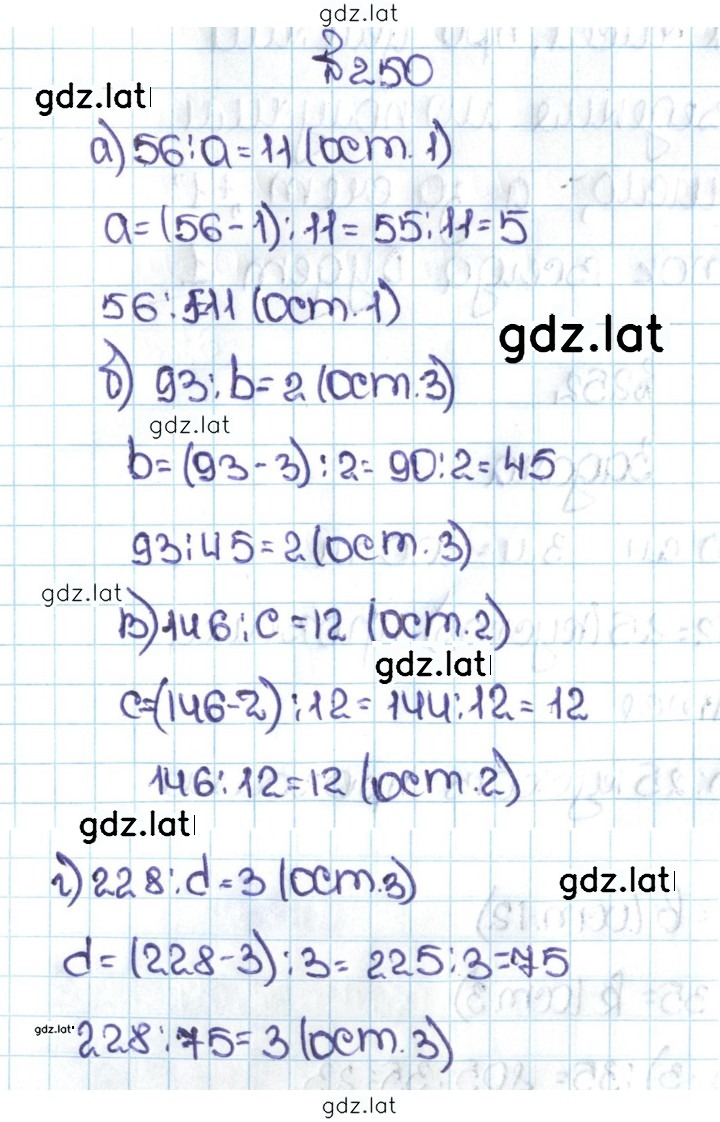 gdz.lat
№ 250
gdz.lat
а) 56 : a = 11 (ост. 1)
a = (56 - 1) : 11 = 55 : 11 = 5
56 : 5=11 (ост. 1)
gdz.lat
б) 93 : b = 2 (ост. 3)
gdz.lat
b = (93 - 3) : 2 = 90 : 2 = 45
93 : 45 = 2 (ост. 3)
gdz.lat
в) 146 : c = 12 (ост. 2)
gdz.lat
c = (146 - 2) : 12 = 144 : 12 = 12
146 : 12 = 12 (ост. 2)
gdz.lat
г) 228 : d = 3 (ост. 3)
gdz.lat
d = (228 - 3) : 3 = 225 : 3 = 75
gdz.lat
228 : 75 = 3 (ост. 3)
gdz.lat